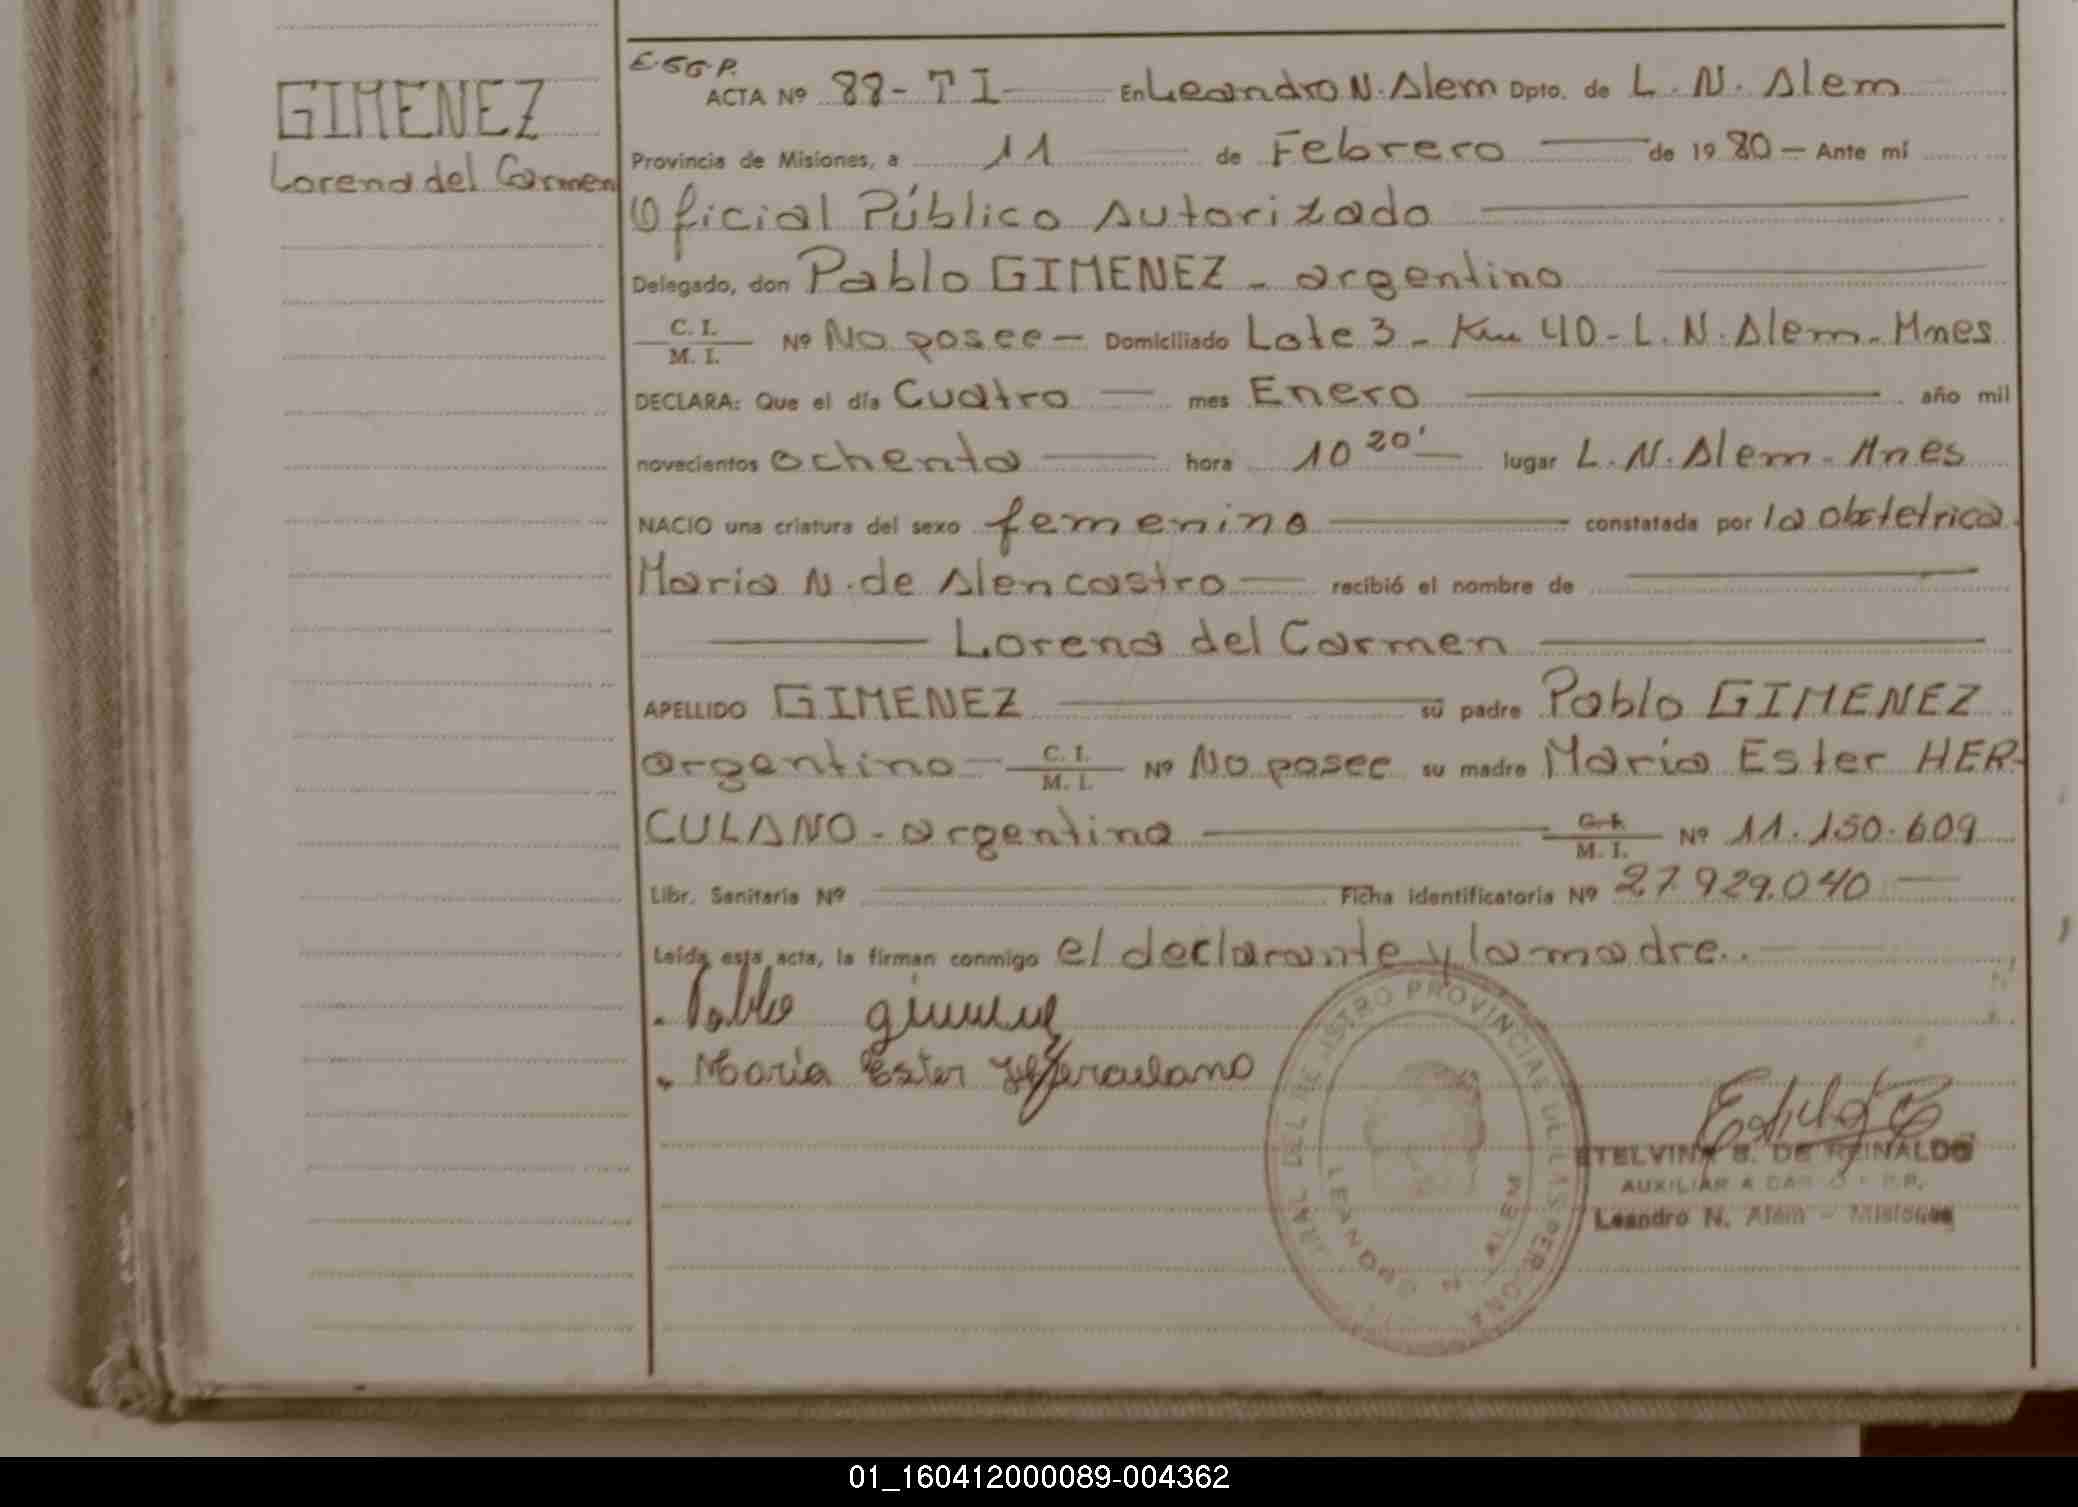 GIMENEZ
Lorena del Carmen
E·GG·P.
ACTA Nº 88 - T I En Leandro N. Alem Dpto. de L. N. Alem
Provincia de Misiones, a 11 de Febrero de 1980 - Ante mí
Oficial Público Autorizado
Delegado, don Pablo GIMENEZ - argentino
C. I.
M. I. Nº No posee - Domiciliado Lote 3 - Km 40 - L. N. Alem - Mnes
DECLARA: Que el día Cuatro mes Enero año mil
novecientos ochenta hora 10 20' lugar L. N. Alem - Mnes
NACIO una criatura del sexo femenino constatada por la obstetrica
Maria N. de Alencastro recibió el nombre de
Lorena del Carmen
APELLIDO GIMENEZ su padre Pablo GIMENEZ
argentino - C. I.
M. I. Nº No posee su madre Maria Ester HER-
CULANO - argentina C. I.
M. I. Nº 11.150.609
Libr. Sanitaria Nº Ficha identificatoria Nº 27.929.040
Leída esta acta, la firman conmigo el declarante y la madre..
Pablo gimenez
Maria Ester Herculano
REGISTRO PROVINCIAL DE LAS PERSONAS
LEANDRO N. ALEM
ETELVINA B. DE REINALDO
AUXILIAR A CARGO R.P.
Leandro N. Alem - Misiones
01_160412000089-004362